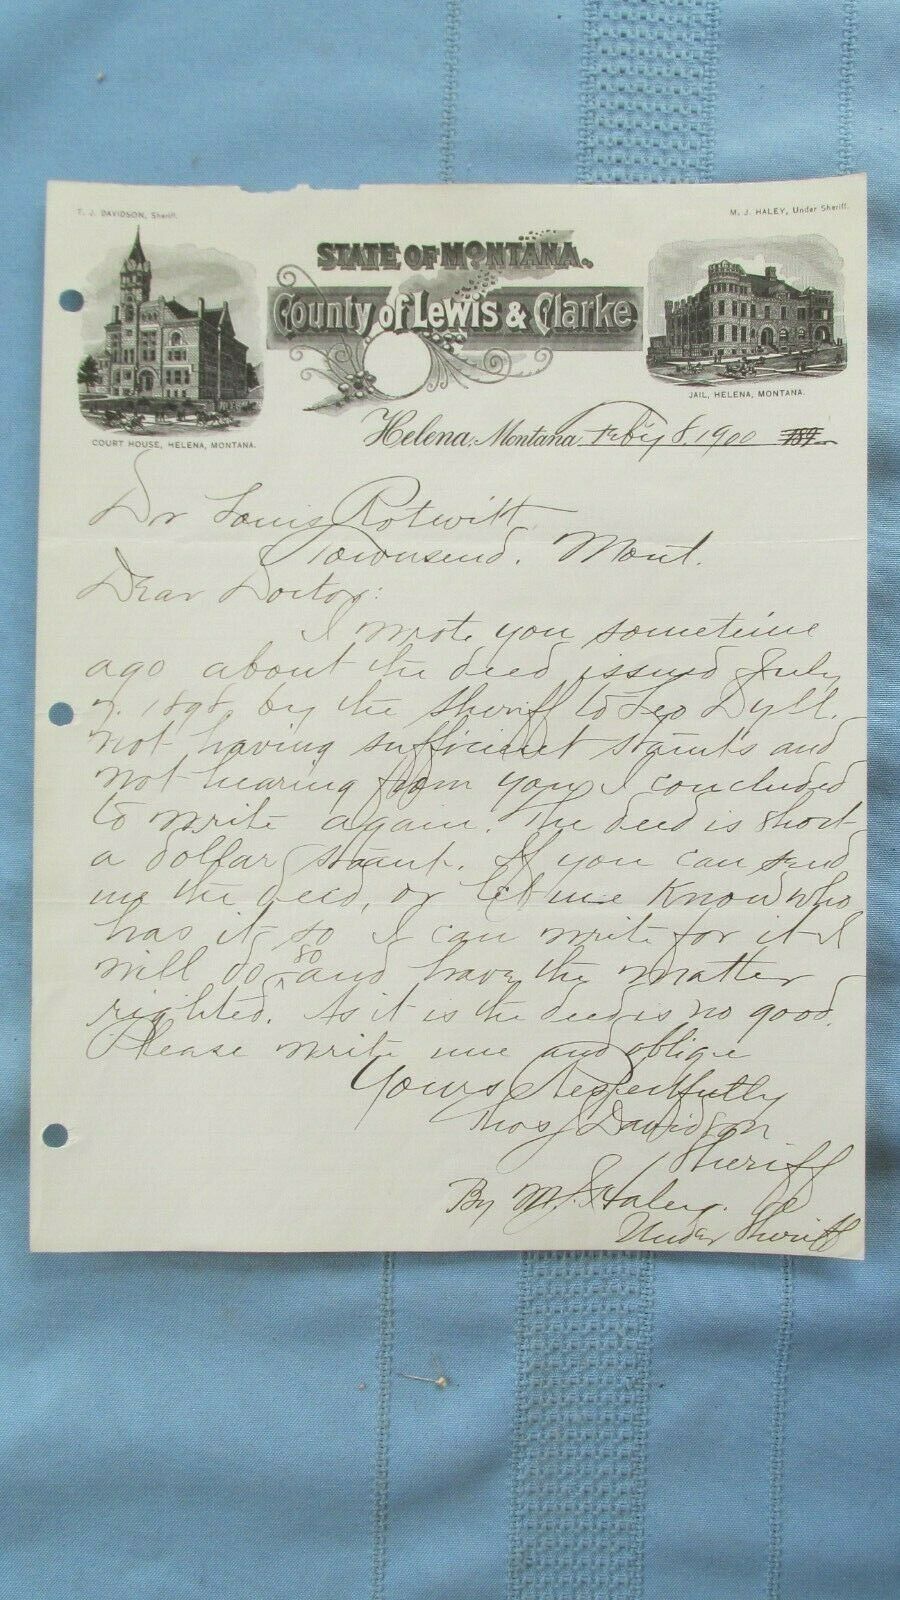 T. J. DAVIDSON, Sheriff.
M. J. HALEY, Under Sheriff.
STATE OF MONTANA.
County of Lewis & Clarke
COURT HOUSE, HELENA, MONTANA.
JAIL, HELENA, MONTANA.
Helena, Montana, Feby 8, 1900 189
Dr Louis Rotwitt
Townsend. Mont.
Dear Doctor:
I wrote you sometime
ago about the deed issued July
7. 1898 by the sheriff to Leo
not having sufficient stamts and
not hearing from you I concluded
to write again. The deed is short
a dollar stamt. If you can send
me the deed, or let me know who
has it so I can write for it I
will do so and have the matter
righted. As it is the deed is no good.
Please write me and oblige
Yours Respectfully
Thos J Davidson
Sheriff
By M. J. Haley.
Under Sheriff